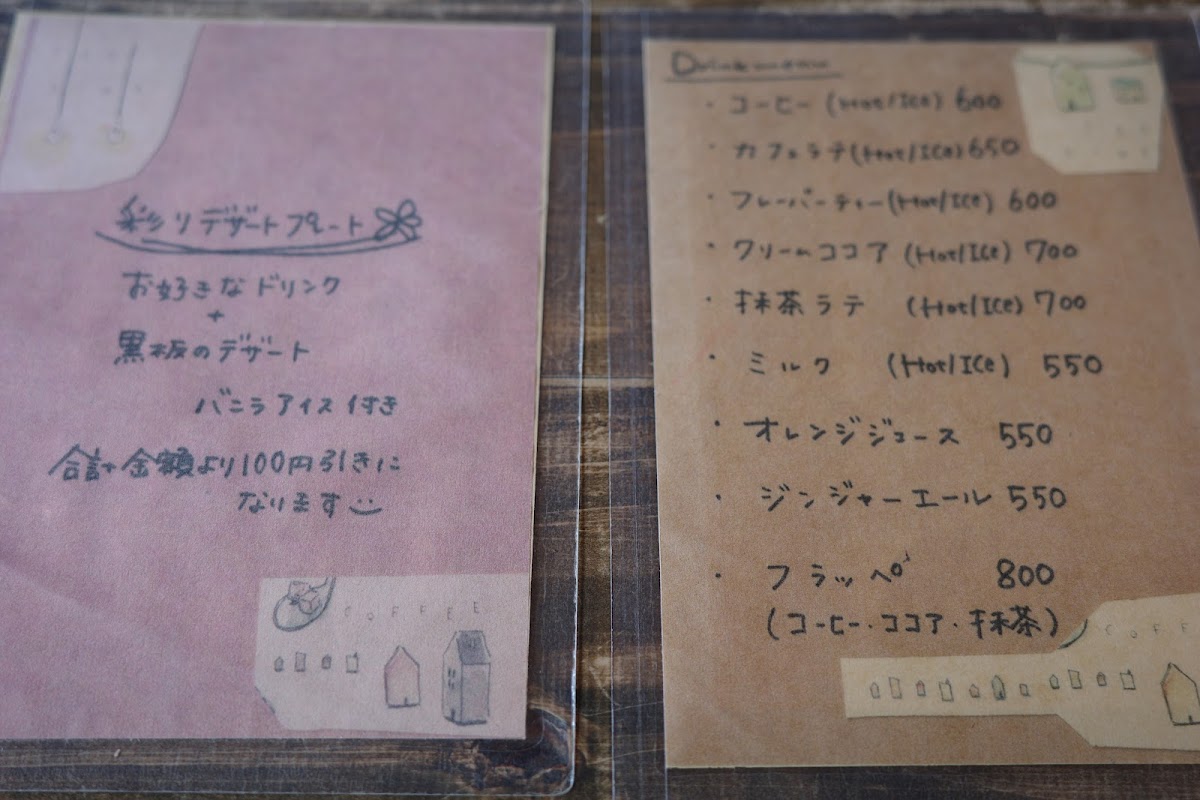 彩りデザートプレート
お好きなドリンク
+
黒板のデザート
バニラアイス付き
合計金額より100円引きに
なります
COFFEE
Drink menu
・コーヒー (Hot/Ice) 600
・カフェラテ(Hot/Ice) 650
・フレーバーティー(Hot/Ice) 600
・クリームココア (Hot/Ice) 700
・抹茶ラテ (Hot/Ice) 700
・ミルク (Hot/Ice) 550
・オレンジジュース 550
・ジンジャーエール 550
・フラッペ 800
(コーヒー・ココア・抹茶)
COFFE